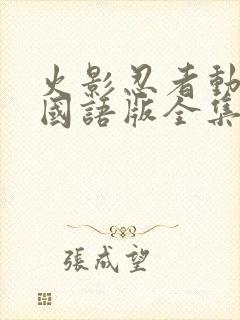 火影忍者動
國語版全集
張成望